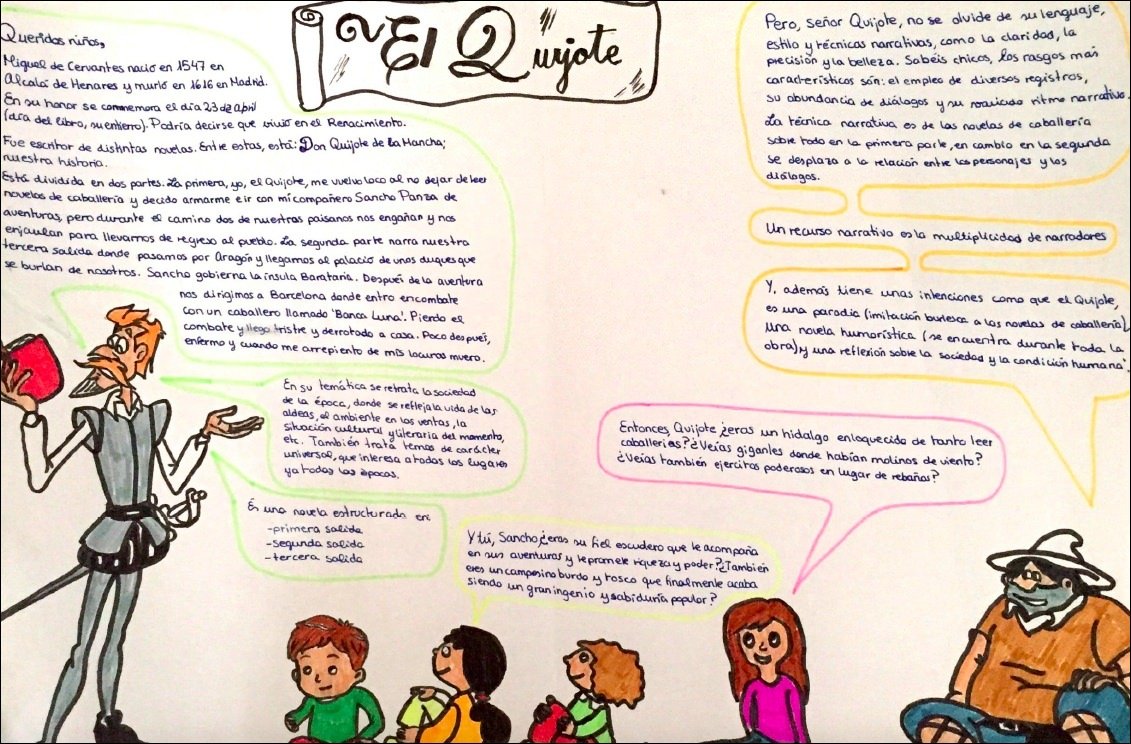 El Quijote
Queridos niños,
Miguel de Cervantes nació en 1547 en
Alcalá de Henares y murió en 1616 en Madrid.
En su honor se conmemora el día 23 de april
(día del libro, su entierro). Podría decirse que vivió en el Renacimiento.
Fue escritor de distintas novelas. Entre estas, está: Don Quijote de la Mancha;
nuestra historia.
Está dividida en dos partes. La primera, yo, el Quijote, me vuelvo loco al no dejar de leer
novelas de caballería y decido armarme e ir con mi compañero Sancho Panza de
aventuras, pero durante el camino dos de nuestros paisanos nos engañan y nos
enjaulan para llevarnos de regreso al pueblo. La segunda parte narra nuestra
tercera salida donde pasamos por Aragón y llegamos al palacio de unos duques que
se burlan de nosotros. Sancho gobierna la ínsula Barataria. Después de la aventura
nos dirigimos a Barcelona donde entro en combate
con un caballero llamado 'Banca Luna'. Pierdo el
combate y llego triste y derrotado a casa. Poco después,
enfermo y cuando me arrepiento de mis locuras muero.
En su temática se retrata la sociedad
de la época, donde se refleja la vida de las
aldeas, el ambiente en las ventas, la
situación cultural y literaria del momento,
etc. También trata temas de carácter
universal, que interesa a todos los lugares
y a todas las épocas.
Es una novela estructurada en:
-primera salida
-segunda salida
-tercera salida
Y tú, Sancho ¿eras su fiel escudero que le acompaña
en sus aventuras y le promete riqueza y poder? ¿También
eres un campesino burdo y tosco que finalmente acaba
siendo un gran ingenio y sabiduría popular?
Entonces, Quijote ¿eras un hidalgo enloquecido de tanto leer
caballerías? ¿Veías gigantes donde habían molinos de viento?
¿Veías también ejercitos poderosos en lugar de rebaños?
Pero, señor Quijote, no se olvide de su lenguaje,
estilo y técnicas narrativas, como la claridad, la
precisión y la belleza. Sabéis chicos, los rasgos más
característicos són: el empleo de diversos registros,
su abundancia de diálogos y su marcado ritmo narrativo.
La técnica narrativa es de las novelas de caballería
sobre todo en la primera parte, en cambio en la segunda
se desplaza a la relación entre los personajes y los
diálogos.
Un recurso narrativo es la multiplicidad de narradores
Y, además tiene unas intenciones como que el Quijote,
es una parodia (imitación burlesca a las novelas de caballería),
una novela humorística (se encuentra durante toda la
obra) y una reflexión sobre la sociedad y la condición humana.